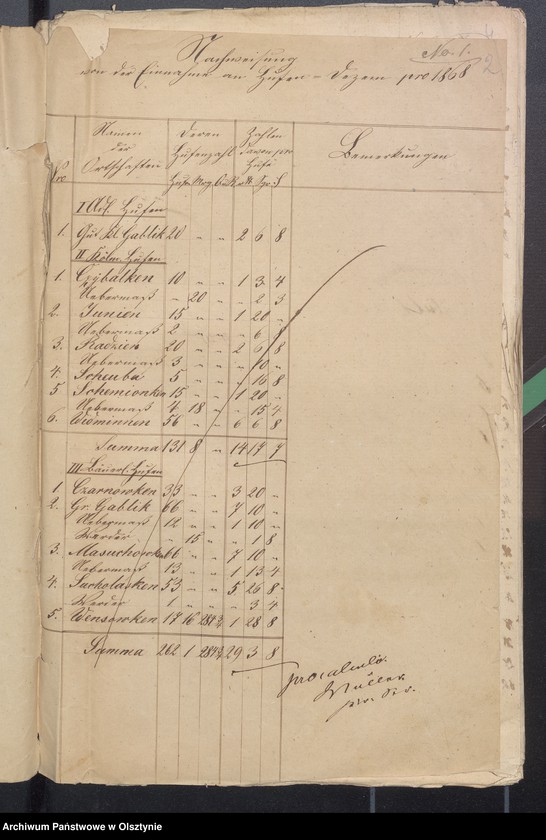 No. 1.
2
Nachweisung
von der Einnahme an Hufen-Dezem pro 1868
Nro
Namen der Ortschaften
Deren Hufenzahl
Zahlen davon pro Hufe
Bemerkungen
Huf. Mrg. R. Sgr.
I Adl. Hufen
1. Gut Kl. Gablik 20 " " 2 6 8
II Kölm. Hufen
1. Czybalken 10 " " 1 3 4
Uebermaß " 20 " " 2 3
2. Junien 15 " " 1 20 "
Uebermaß 2 " " " 6 8
3. Radzien 20 " " 2 6 8
Uebermaß 3 " " " 10 "
4. Scheuba 5 " " " 16 8
5 Schemionken 15 " " 1 20 "
Uebermaß 4 18 " " 15 4
6. Widminnen 56 " " 6 6 8
Summa 131 8 " 14 17 7
III. Bäuerl. Hufen
1. Czarnowken 33 " " 3 20 "
2. Gr. Gablik 66 " " 7 10 "
Uebermaß 12 " " 1 10 "
Werder " 15 " " 1 8
3. Masuchowken 66 " " 7 10 "
Uebermaß 13 " " 1 13 4
4. Sucholasken 53 " " 5 26 8
Werder 1 " " " 3 4
5. Wensowken 17 16 1 28 8
Summa 262 1 29 3 8
pro calculo
Müller
Archiwum Państwowe w Olsztynie